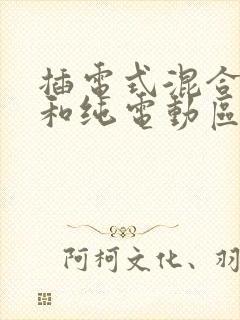 插電式混合
和纯電動區
阿柯文化、羽